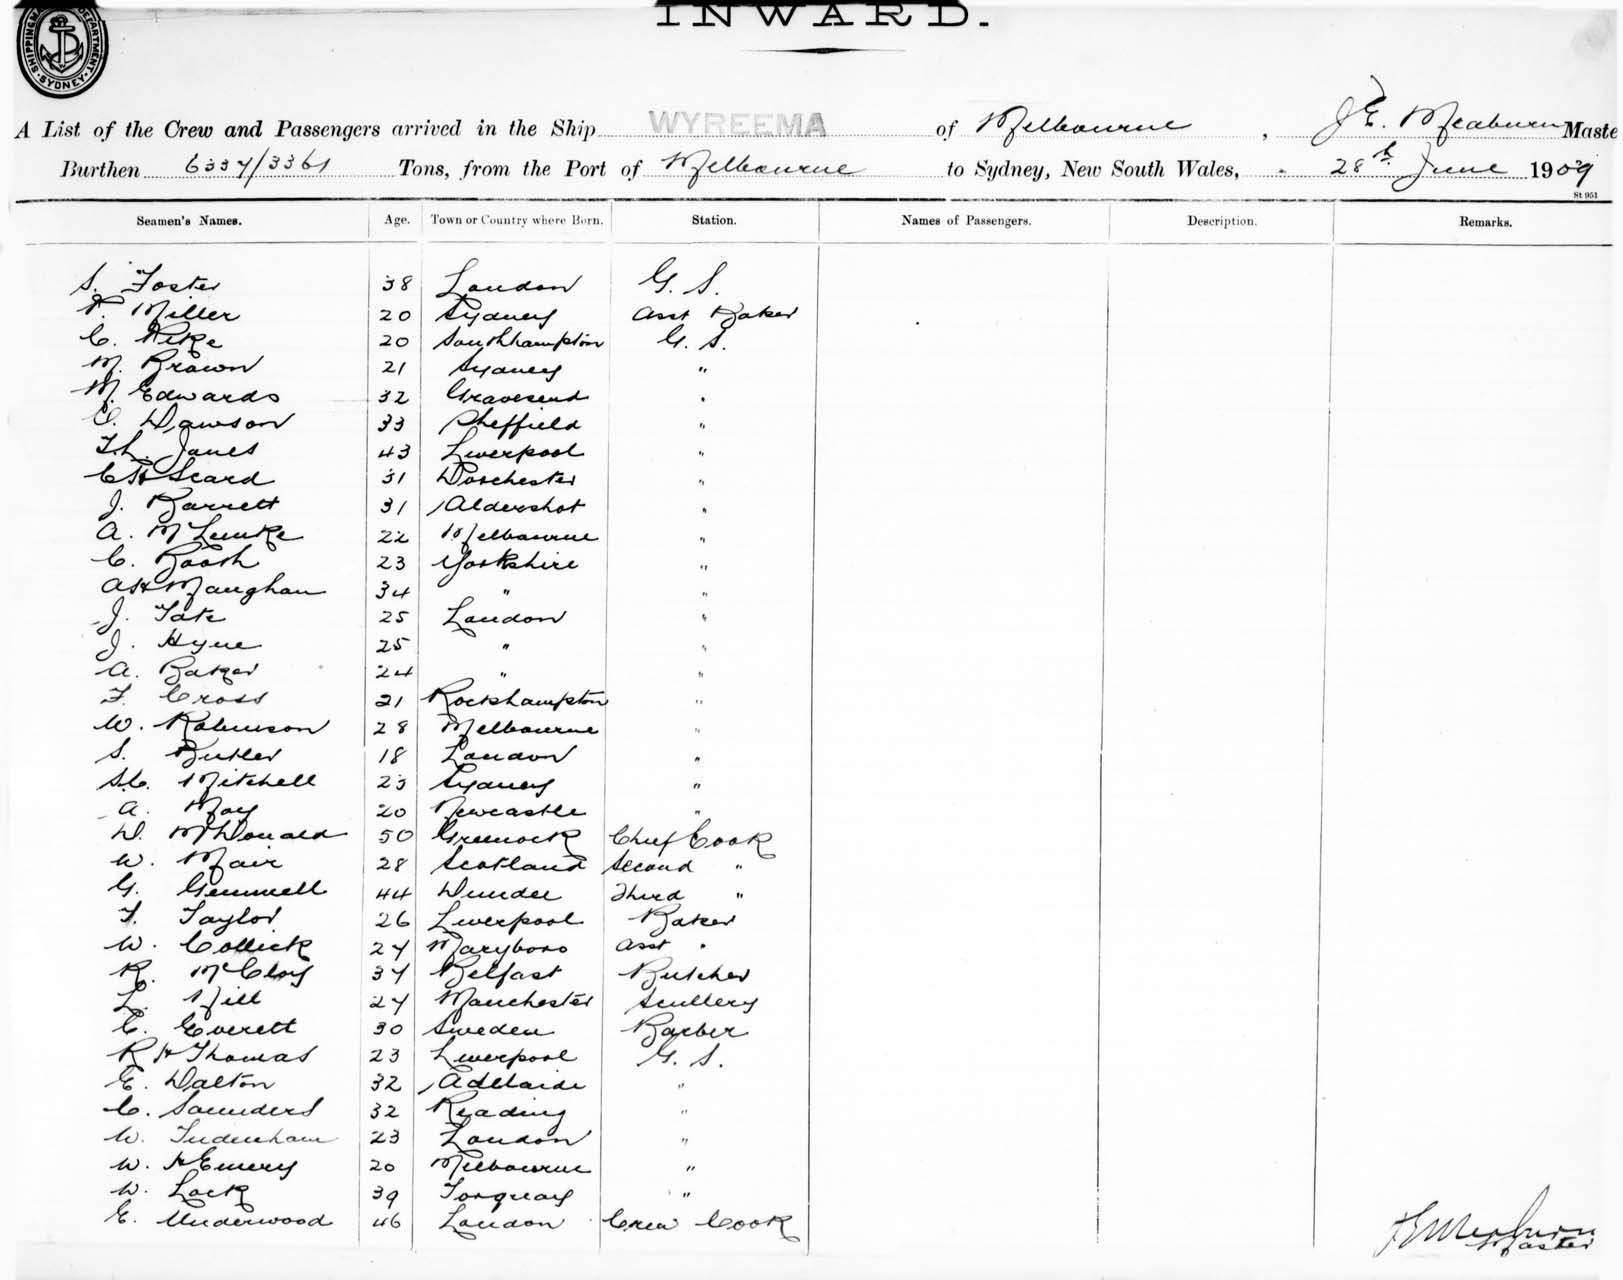 INWARD.
SHIPPING DEPARTMENT SYDNEY
A List of the Crew and Passengers arrived in the Ship WYREEMA of Melbourne, J E. Meaburn Maste
Burthen 6337/3361 Tons, from the Port of Melbourne to Sydney, New South Wales, 28th June 1909
St 951
Seamen's Names. Age. Town or Country where Born. Station. Names of Passengers. Description. Remarks.
S. Foster 38 London G. S.
Miller 20 Sydney Asst Baker
C. Pike 20 Southhampton G. S.
M. Brown 21 Sydney "
M. Edwards 32 Gravesend "
Dawson 33 Sheffield "
Jones 43 Liverpool "
C H Scard 31 Dorchester "
J. Barrett 31 Aldershot "
A. 22 Melbourne "
C. Booth 23 Yorkshire "
A H Maughan 34 " "
J. Tate 25 London "
J. Hyne 25 " "
A. Baker 24 " "
F. Cross 21 Rockhampton "
W. Robinson 28 Melbourne "
S. Butler 18 London "
S.C. Mitchell 23 Sydney "
A. May 20 Newcastle "
D. McDonald 50 Greenock Chief Cook
W. Mair 28 Scotland Second "
G. Gemmell 44 Dundee Third "
F. Taylor 26 Liverpool Baker
W. Collick 27 Maryboro Asst "
R. McCloy 37 Belfast Butcher
L. Hill 27 Manchester Scullery
C. Everett 30 Sweden Barber
R H Thomas 23 Liverpool G. S.
E. Dalton 32 Adelaide "
C. Saunders 32 Reading "
W. Tudenham 23 London "
W. H Emery 20 Melbourne "
W. Lock 39 Torquay "
E. Underwood 46 London Crew Cook
Master